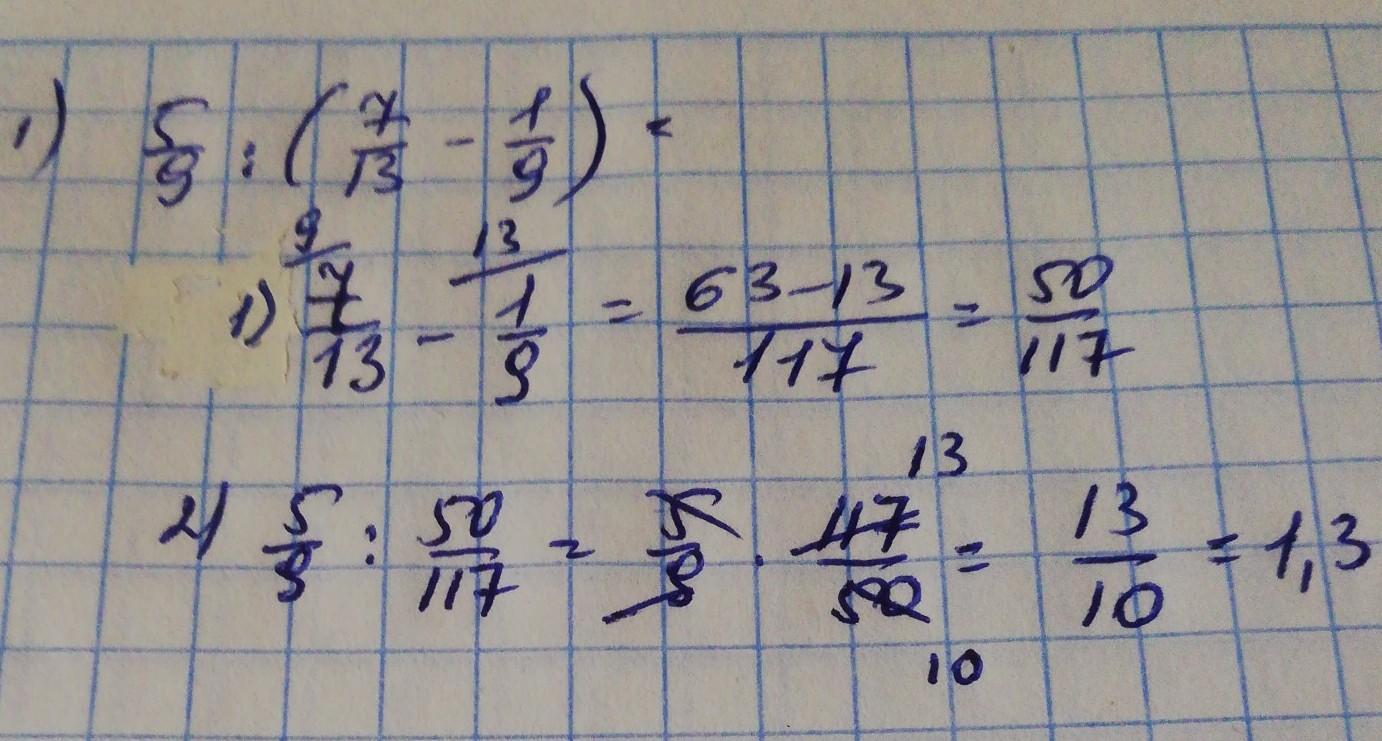 1) 5/9 : (7/13 - 1/9) =
1) 9/ 7/13 - 13/ 1/9 = 63-13/117 = 50/117
2) 5/9 : 50/117 = 5/9 · 117/50 13 10 = 13/10 = 1,3